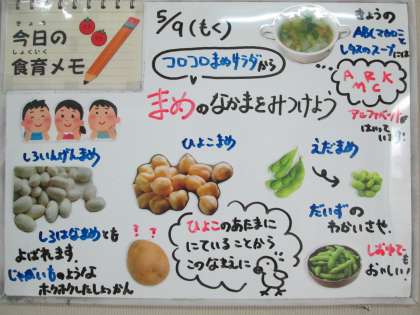 きょう
今日の
しょくいく
食育メモ
5/9(もく)
コロコロまめサラダから
まめのなかまをみつけよう
きょうの
ABCマカロニと
レタスのスープには
A R K
M C
アルファベットが
はいって
います!
しろいんげんまめ
しろはなまめとも
よばれます。
じゃがいものような
ホクホクしたしょっかん
? ?
ひよこまめ
ひよこのあたまに
にていることから
このなまえに
えだまめ
だいずの
わかいさや。
しおゆでも
おいしい!